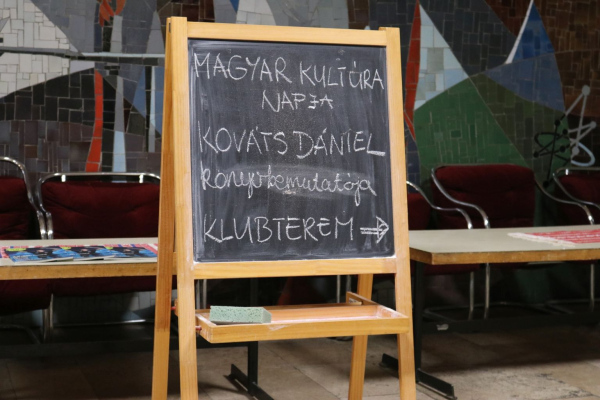 MAGYAR KULTÚRA
NAPJA
KOVÁTS DÁNIEL
könyvbemutatója
KLUBTEREM →